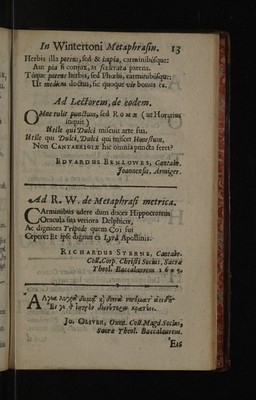 In Wintertoni Metaphrasin. 13
Herbis illa potens, sed & impia, carminibúsque:
Aut pia sì conjux, at scelerata parens.
Túque potens herbis, sed Phœbi, carminibúsque:
Ut medicus doctus, sic quoque vir bonus es.
Ad Lectorem, de eodem.
OMne tulit punctum, sed ROMÆ (ut Horatius
inquit)
Utile qui Dulci miscuit arte sua.
Utile qui Dulci, Dulci qui miscet Honestum,
Non CANTABRIGIÆ hic omnia puncta feret?
EDVARDUS BENLOWES, Cantabr.
Joannensis, Armiger.
Ad R. W. de Metaphrasi metrica.
CArminibus udere dum doces Hippocratem
Oracula sua veriora Delphicis,
Ac digniora Tripode quem Coi sui
Cepere: Et ipse dignus es Lyrâ Apollinis.
RICHARDUS STERNE, Cantabr.
Coll. Corp. Christi Socius, Sacræ
Theol. Baccalaureus
Jo. OLIVER, Coll. Magd. Socius,
Sacræ Theol. Baccalaureus.
Eis